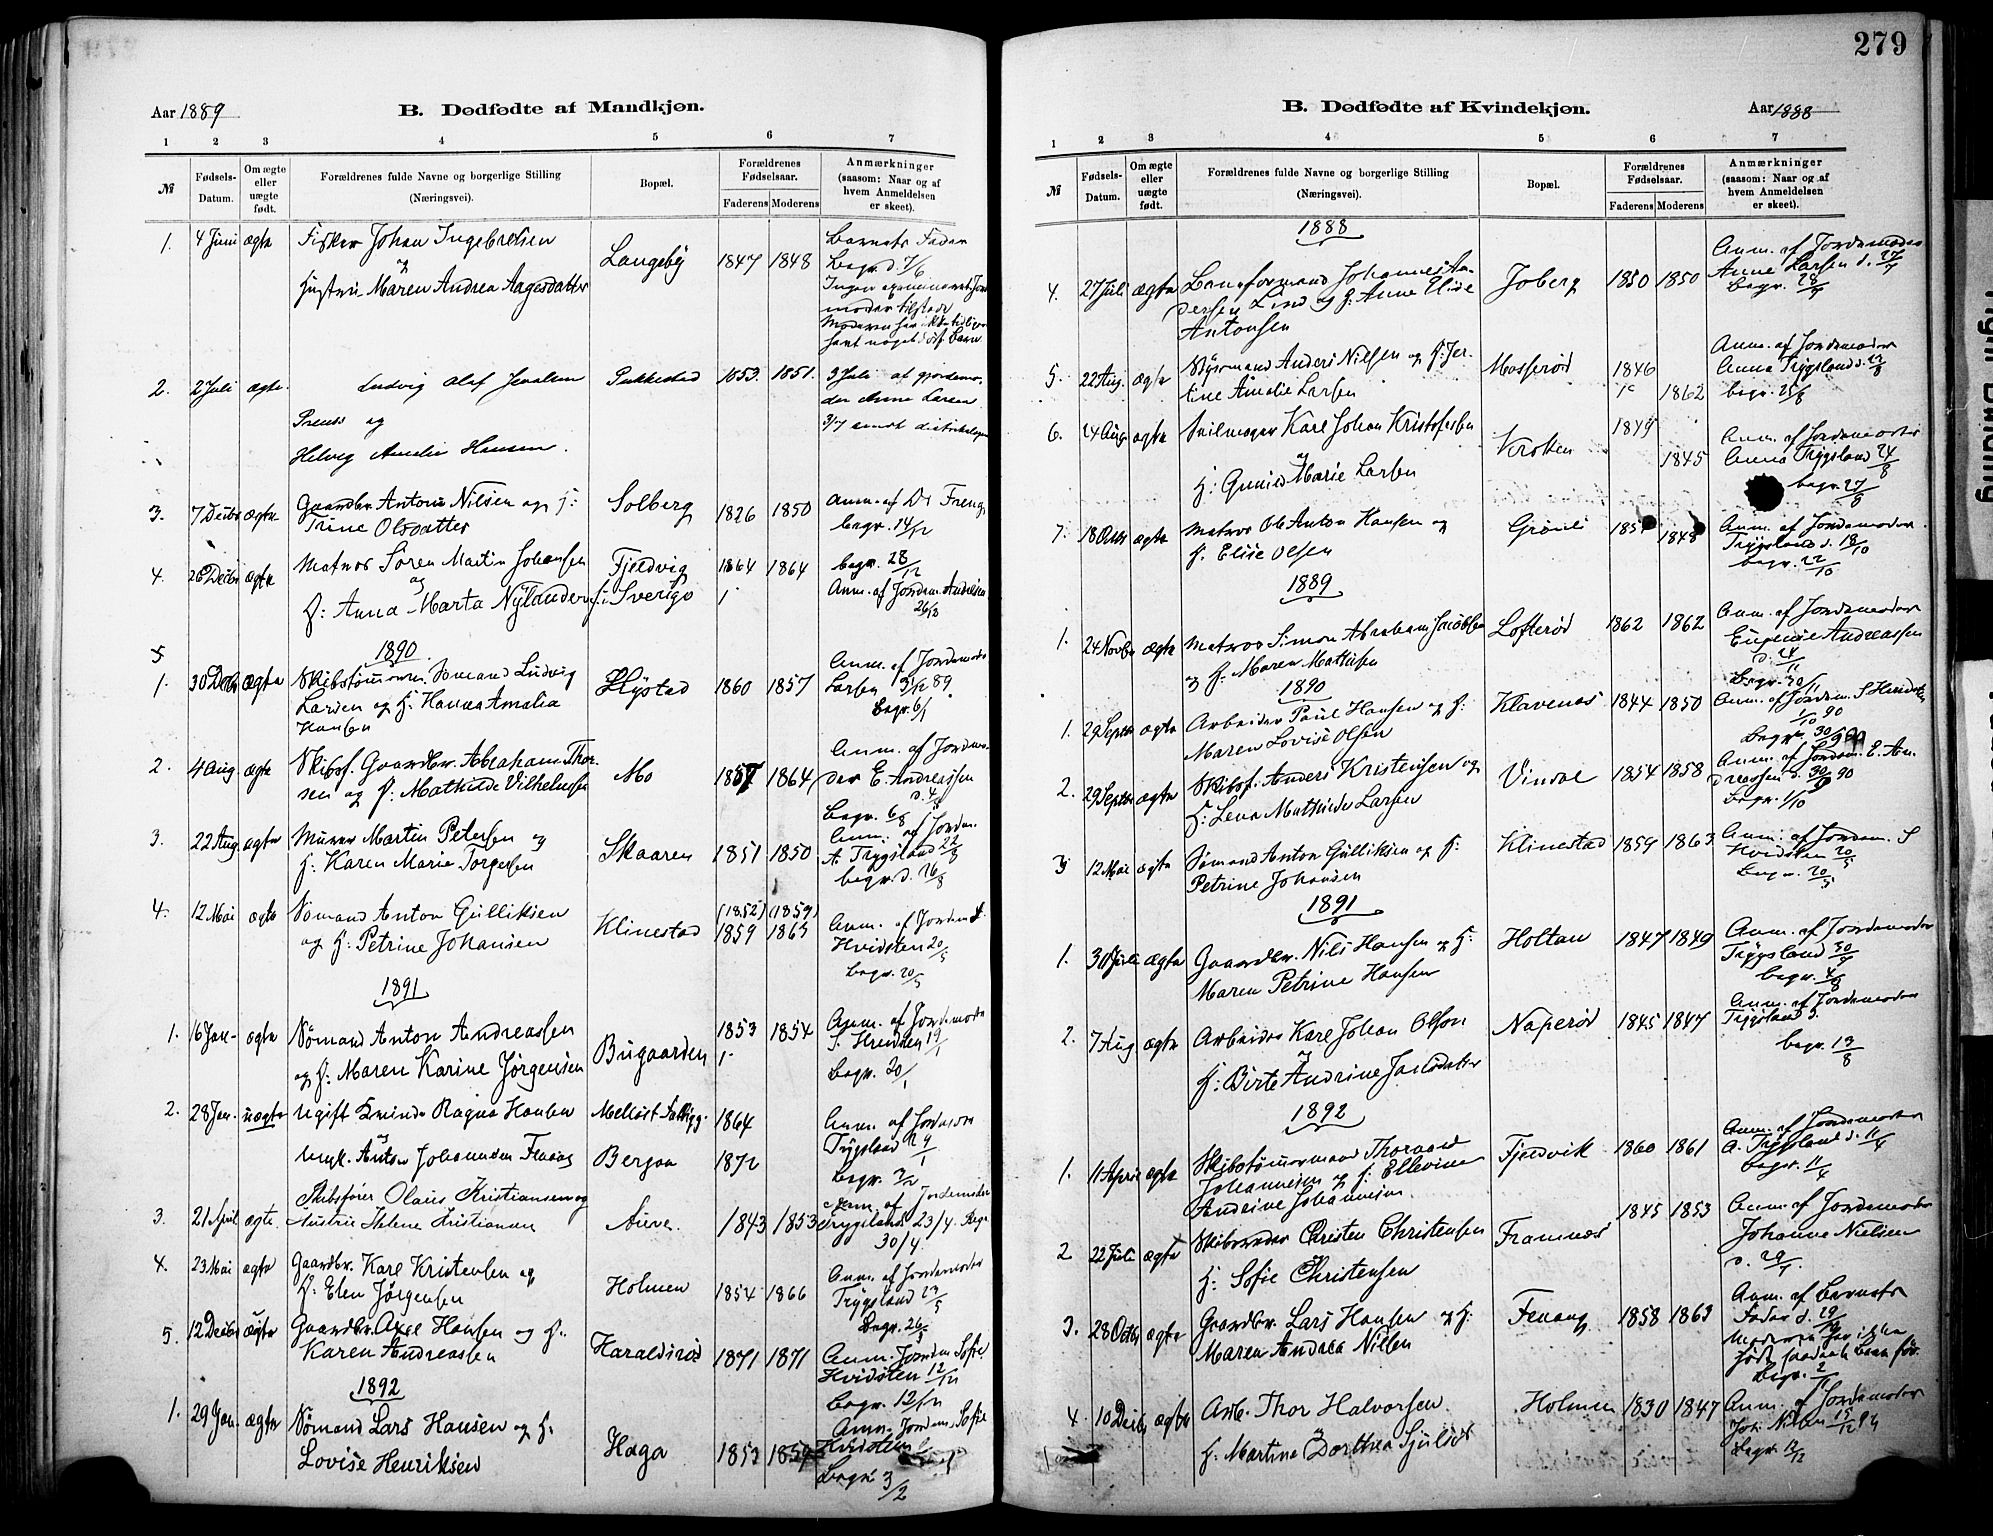 279
Aar 1889
B. Dødfødte af Mandkjøn.
1 2 3 4 5 6 7
№
Fødsels-Datum.
Om ægte eller uægte født.
Forældrenes fulde Navne og borgerlige Stilling (Næringsvei).
Bopæl.
Forældrenes Fødselsaar.
Faderens Moderens
Anmærkninger (saasom: Naar og af hvem Anmeldelsen er skeet).
1. 4 Juni ægte Fisker Johan Ingebretsen Langeby 1847 1848 Barnets Fader
og Begr. d. 7/6
Hustru Maren Andrea Aagesdatter
2. 2 Juli ægte Ludvig Olaf Pukkestad 1853. 1851. 3 Juli af gjordemo-
Preuss og der Anne Larsen
Helvig Amalie Hansen.
3. 7 Decbr ægte Gaardbr. Anton Nilsen og H: Solberg 1826 1850 Anm. af Dr Freng
Trine Olsdatter begr. 14/12
4. 26 Decbr ægte Matros Søren Martin Johansen Fjeldvig 1864 1864 begr. 28/12
og
H: Anna Marta Nylander f. i Sverige Anm. af Jordem. Andresen
1890
1. 30 Decbr ægte Skibstømmerm. Sømand Ludvig Hystad 1860 1857 Anm. af Jordemoder
Larsen og H: Hanna Amalia Larsen 31/12 89
Hansen Begr. 6/1
2. 4 Aug ægte Skibsf. Gaardbr. Abraham Thor- Mo 1857 1864 Anm. af Jordemo-
sen og H: Mathilde Vilhelmsen der E. Andreassen
Begr. 6/8
3. 22 Aug ægte Murer Martin Petersen og Skaaren 1851 1850 Anm. af Jordem.
H: Karen Marie Torgersen A. Trygsland 22/8
begr. d. 26/8
4. 12 Mai ægte Sømand Anton Gulliksen Klinestad (1852) (1859)
og H: Petrine Johansen 1859 1863 Anm. af Jordem. S.
Hvidsten 20/5
Begr. 20/5
1891
1. 16 Jan. ægte Sømand Anton Andreassen Bugaarden 1853 1854 Anm. af Jordemoder
og H: Maren Karine Jørgensen S. Hvidsten 19/1
Begr. 20/1
2. 28 Jan. uægte Ugift Kvinde Ragna Hansen 1864 Anm. af Jordemoder
og
Ungk. Anton Johannesen Fevang Bergan 1872 Trygsland 29/1
Begr. 3/2
3. 21 April ægte. Skibsfører Olaus Kristiansen og
Hustru Helene Kristiansen Auve. 1843 1853 Anm. af Jordemoder
Trygsland 23/4. Begr.
30/4.
4. 23 Mai ægte Gaardbr. Karl Kristensen og Holmen 1854 1866 Anm. af Jordemoder
H: Elen Jørgensen Trygsland 23/5
Begr. 26/5
5. 12 Decbr ægte Gaardbr. Axel Hansen og H: Haraldsrød 1871 1871 Anm. Jordem Sofie
Karen Andreassen Hvidsten 12/12
Begr. 12/12
1892
1. 29 Jan. ægte Sømand Lars Hansen og H: Haga 1853 1859 Anm. Jordem. Sofie
Lovise Henriksen Hvidsten
Begr. 3/2
B. Dødfødte af Kvindekjøn.
Aar 1888
1 2 3 4 5 6 7
№
Fødsels-Datum.
Om ægte eller uægte født.
Forældrenes fulde Navne og borgerlige Stilling (Næringsvei).
Bopæl.
Forældrenes Fødselsaar.
Faderens Moderens
Anmærkninger (saasom: Naar og af hvem Anmeldelsen er skeet).
1888
4. 27 Juli ægte Baneformand Johannes An- Joberg 1850 1850 Anm. af Jordemoder
dersen Lind og H: Anne Elise Anne Larsen d. 27/7
Antonsen begr. 28/7
5. 22 Aug. ægte Styrmand Anders Nilsen og H: Jer- Mosserød 1846 1862 Anm. af Jordemoder
tine Amalie Larsen Anna Trygsland d. 22/8
begr. 25/8
6. 24 Aug ægte Seilmager Karl Johan Kristofersen Krokken 1849 1845 Anm. af Jordemoder
og
H: Gunild Marie Larsen Anna Trygsland 24/8
begr. 27/8
7. 18 Octr ægte Matros Ole Anton Hansen og Grønli 1848 Anm. af Jordemoder
H: Elise Olsen Trygsland d. 18/10
begr. 22/10
1889
1. 24 Novbr ægte Matros Simon Abraham Jacobsen Lofterød 1862 1862 Anm. af Jordemoder
og H: Maren Mathisen Eugenie Andreassen
d. 24/11
Begr. 30/11
1890
1. 29 Septbr ægte Arbeider Paul Hansen og H: Klavenes 1844 1850 Anm. af Jordem. S Hvidsten
Maren Lovise Olsen 1/10 90
Begr. 30/9 90
2. 29 Septbr ægte Skibsf. Anders Kristensen og Vindal 1854 1858 Anm. af Jordem. E. An-
H: Lena Mathilde Larsen dreassen d. 30/9 90
Begr. 1/10
3 12 Mai ægte Sømand Anton Gulliksen og H: Klinestad 1859 1863 Anm. af Jordem. S
Petrine Johansen Hvidsten 20/5
Begr. 20/5
1891
1. 30 Juli ægte Gaardbr. Nils Hansen og H: Holtan 1847 1849 Anm. af Jordemoder
Maren Petrine Hansen Trygsland 30/7
begr. 4/8
2. 7 Aug ægte Arbeider Karl Johan Olsen Naperød 1845 1847 Anm. af Jordemoder
og
H: Birte Andrine Trygsland d.
begr. 13/8
1892
1. 11 April ægte Skibstømmermand Thorvald Fjeldvik 1860 1861 Anm. af Jordemoder
Johannesen og H: Ellevine A. Trygsland d. 11/4
Andrine Johannesen begr. 11/4
2 22 Juli ægte Skibsreder Christen Christensen Framnæs 1845 1853 Anm. af Jordemoder
H: Sofie Christensen Johanne Nielsen
3. 28 Octbr ægte Gaardbr. Lars Hansen og H: Fevang 1858 1863 Anm. af Barnets
Maren Andrea Nilsen Fader d. 29/10
Moderen har ikke
født saadant Barn før.
4 10 Decbr ægte Arb. Thor Halvorsen Holmen 1830 1847 Anm. af Jordemoder
og
H: Martina Dorthea Joh. Nilsen
Begr. 12/12